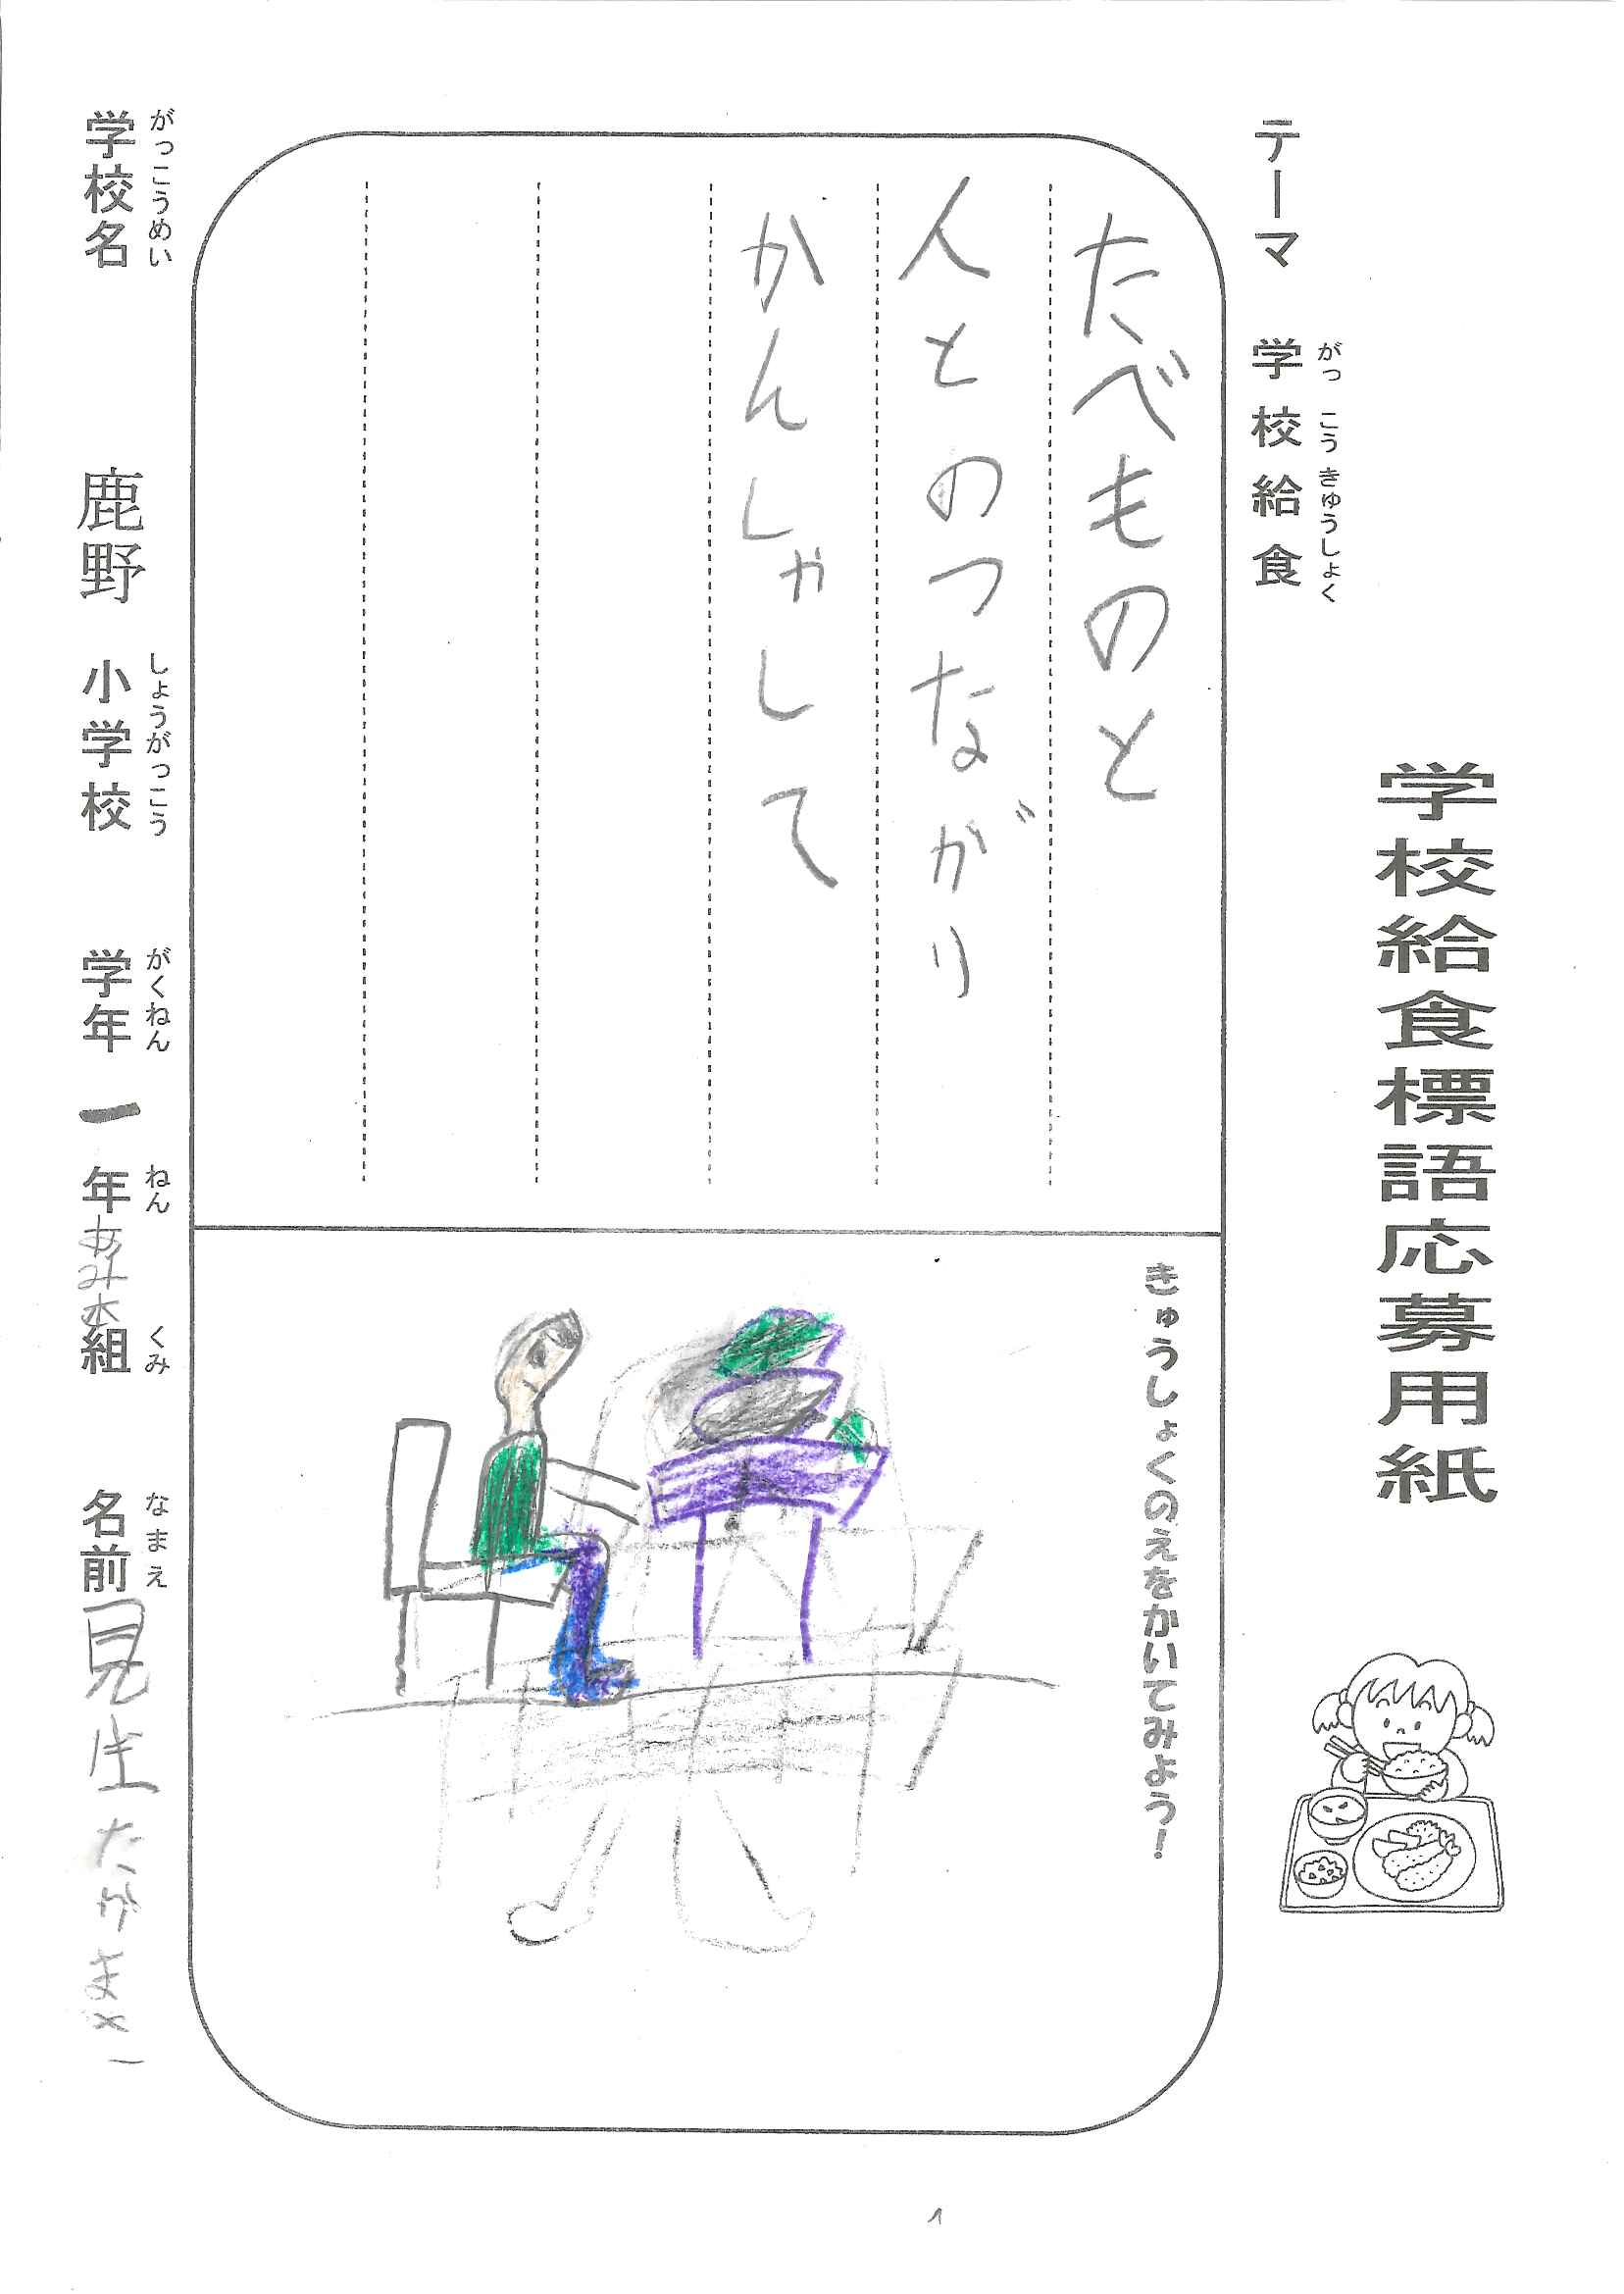 学校給食標語応募用紙
テーマ 学校給食
がっこうきゅうしょく
たべものと
人とのつながり
かんしゃして
きゅうしょくのえをかいてみよう！
がっこうめい しょうがっこう がくねん ねん くみ なまえ
学校名 鹿野 小学校 学年 一 年 組 名前 見生 たかま
1